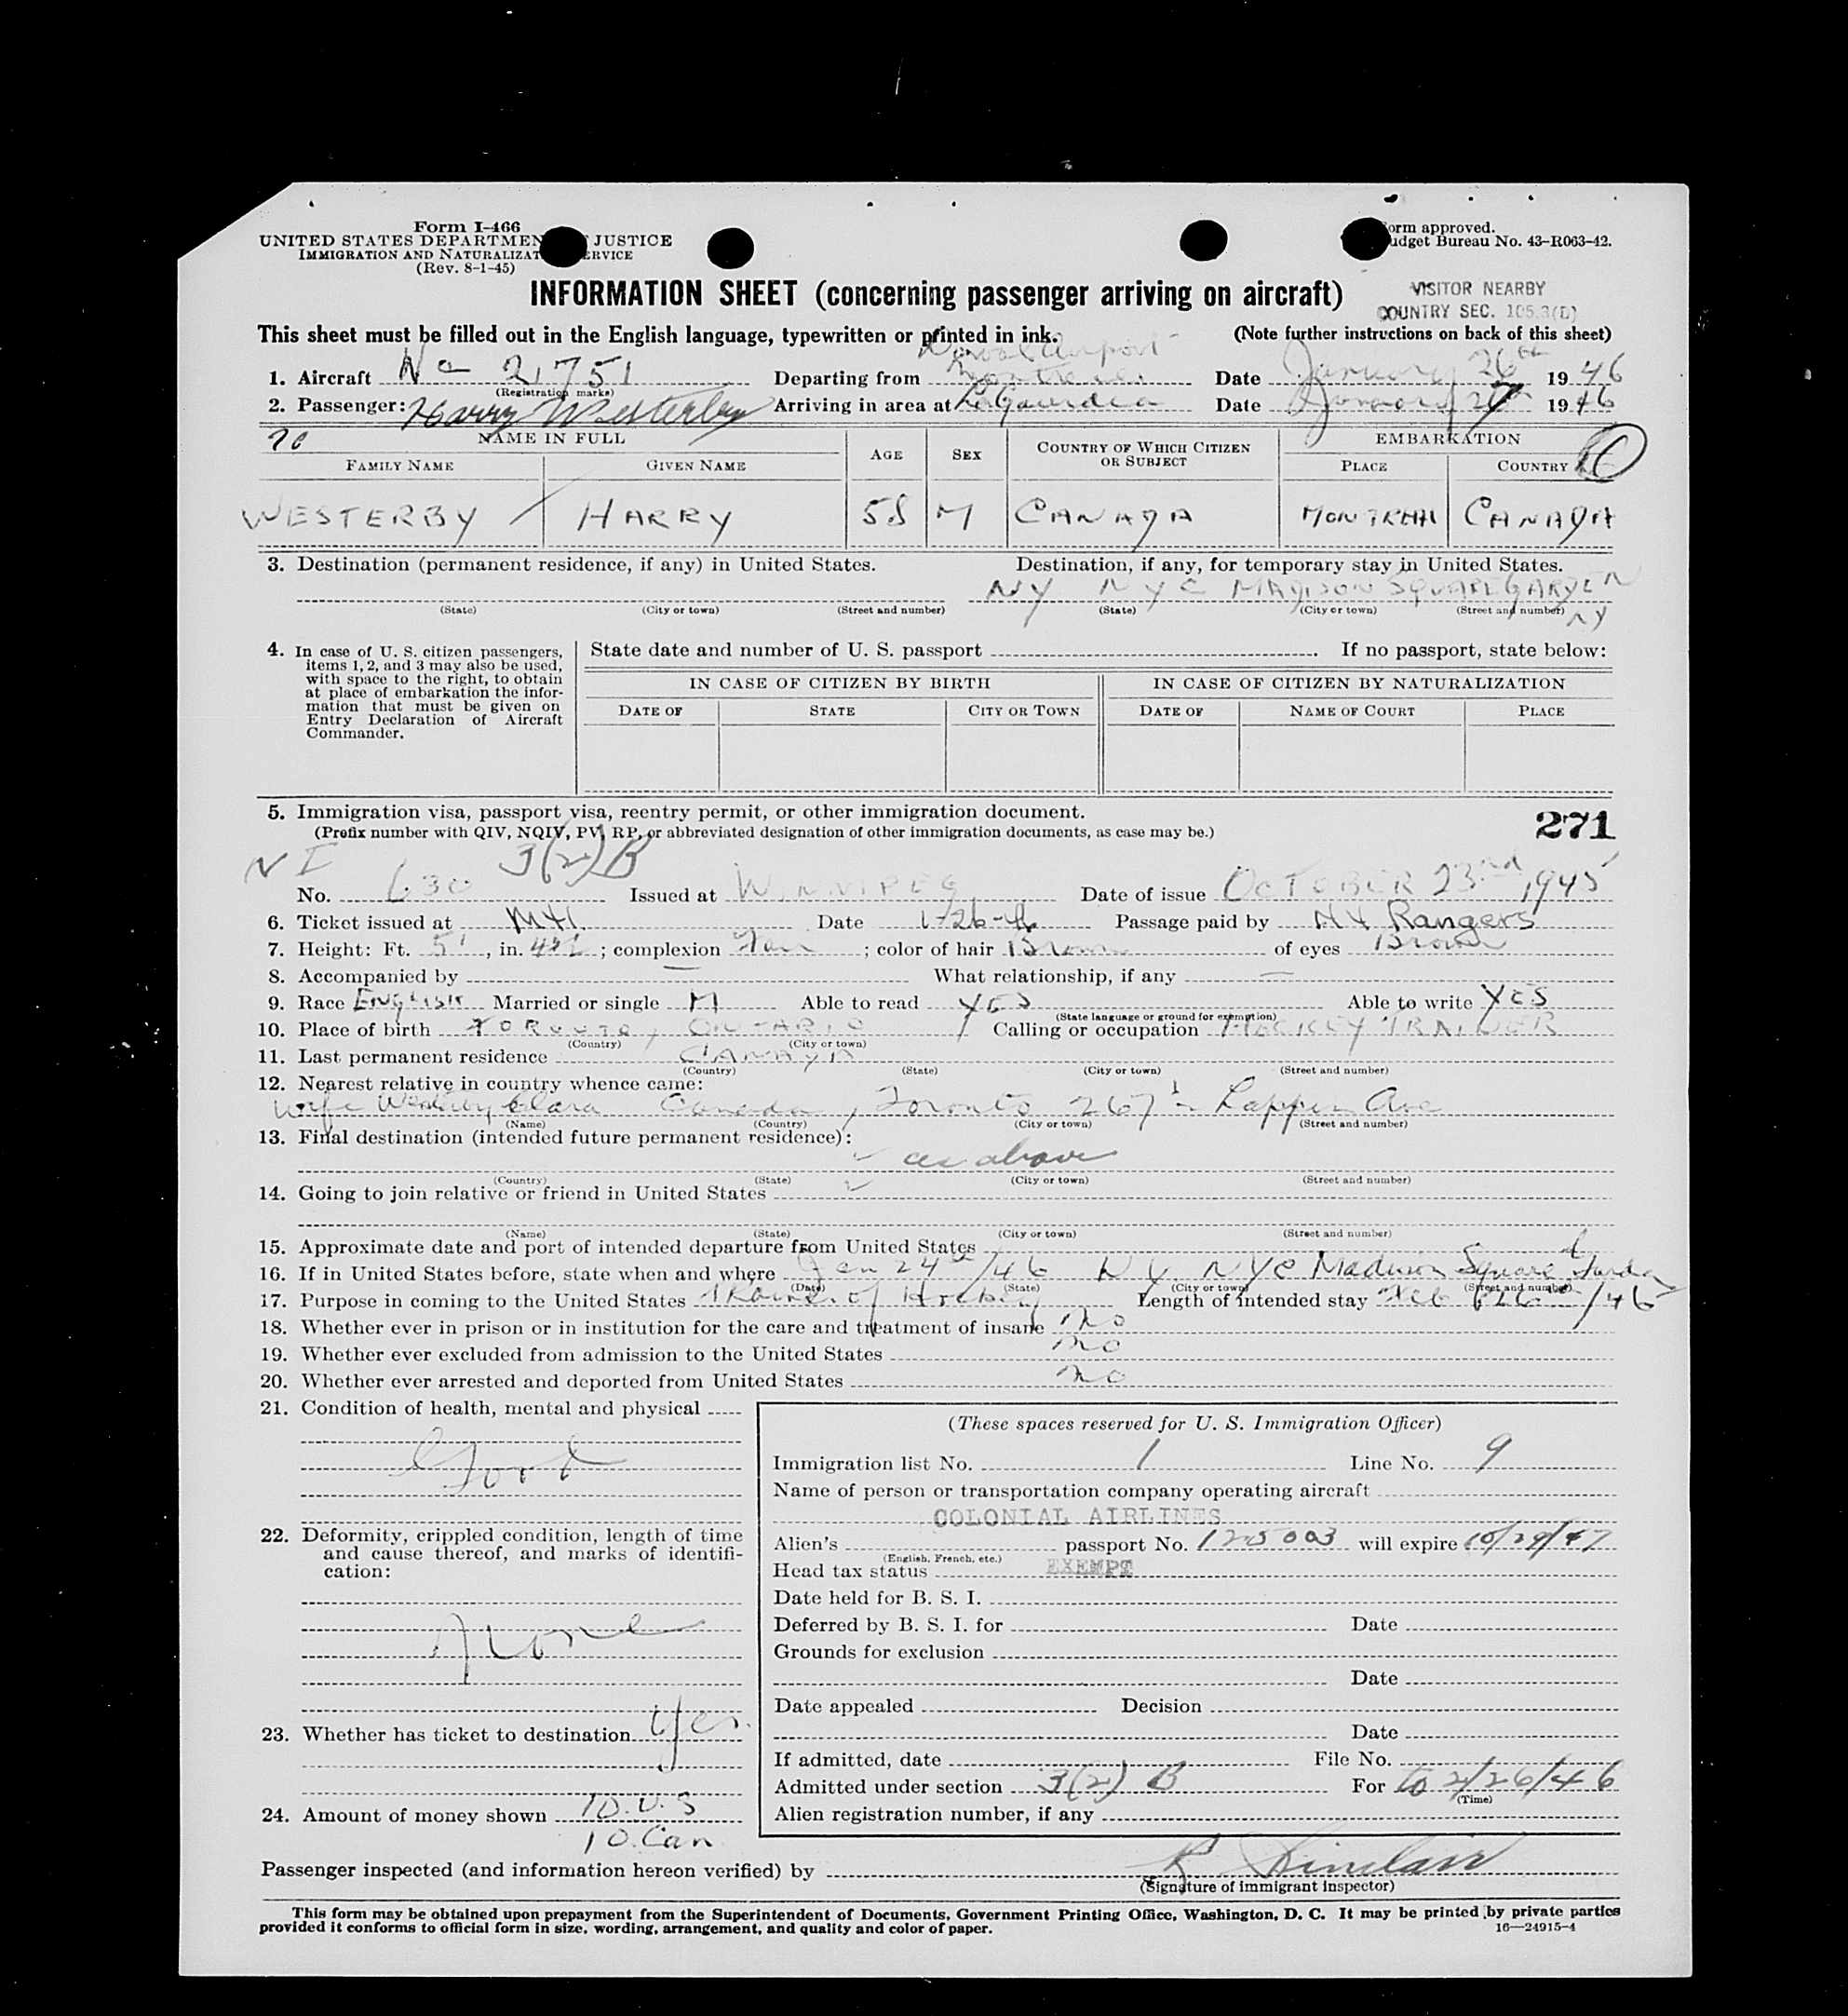 Form I-466
UNITED STATES DEPARTMEN JUSTICE
IMMIGRATION AND NATURALIZAT ERVICE
(Rev. 8-1-45)
orm approved.
udget Bureau No. 43-R063-42.
INFORMATION SHEET (concerning passenger arriving on aircraft)
VISITOR NEARBY
COUNTRY SEC. 105.3(D)
This sheet must be filled out in the English language, typewritten or printed in ink. (Note further instructions on back of this sheet)
Dorval Airport
1. Aircraft Nc 21751 Departing from Montreal Date January 26th 19 46
(Registration marks)
2. Passenger: Harry Westerby Arriving in area at LaGuardia Date January 19 46
NAME IN FULL AGE SEX COUNTRY OF WHICH CITIZEN OR SUBJECT EMBARKATION
FAMILY NAME GIVEN NAME PLACE COUNTRY
WESTERBY HARRY 58 M CANADA MONTREAL CANADA
3. Destination (permanent residence, if any) in United States. Destination, if any, for temporary stay in United States.
NY NYC MADISON SQUARE GARDEN
NY
(State) (City or town) (Street and number) (State) (City or town) (Street and number)
4. In case of U. S. citizen passengers, items 1, 2, and 3 may also be used, with space to the right, to obtain at place of embarkation the information that must be given on Entry Declaration of Aircraft Commander.
State date and number of U. S. passport . If no passport, state below:
IN CASE OF CITIZEN BY BIRTH IN CASE OF CITIZEN BY NATURALIZATION
DATE OF STATE CITY OR TOWN DATE OF NAME OF COURT PLACE
5. Immigration visa, passport visa, reentry permit, or other immigration document. 271
(Prefix number with QIV, NQIV, PV, RP, or abbreviated designation of other immigration documents, as case may be.)
N I 3(2)B
No. 630 Issued at WINNIPEG Date of issue OCTOBER 23rd, 1945
6. Ticket issued at Mtl. Date 1-26-46 Passage paid by NY Rangers
7. Height: Ft. 5', in. ; complexion Fair ; color of hair Brown of eyes Brown
8. Accompanied by — What relationship, if any —
9. Race English Married or single M Able to read YES Able to write YES
(State language or ground for exemption)
10. Place of birth TORONTO, ONTARIO Calling or occupation HOCKEY TRAINER
(Country) (City or town)
11. Last permanent residence CANADA
(Country) (State) (City or town) (Street and number)
12. Nearest relative in country whence came:
wife Westerby Clara Canada, Toronto 267½ Lappin Ave
(Name) (Country) (City or town) (Street and number)
13. Final destination (intended future permanent residence):
as above
(Country) (State) (City or town) (Street and number)
14. Going to join relative or friend in United States
(Name) (State) (City or town) (Street and number)
15. Approximate date and port of intended departure from United States
16. If in United States before, state when and where Jan 24th/46 NY NYC Madison Square Garden
(Date) (State) (City or town) (Street and number)
17. Purpose in coming to the United States Trainer of Hockey Length of intended stay Feb 26th/46
18. Whether ever in prison or in institution for the care and treatment of insane no
19. Whether ever excluded from admission to the United States no
20. Whether ever arrested and deported from United States no
21. Condition of health, mental and physical
Good
22. Deformity, crippled condition, length of time and cause thereof, and marks of identification:
None
23. Whether has ticket to destination yes.
24. Amount of money shown 10.U.S
10.Can
(These spaces reserved for U. S. Immigration Officer)
Immigration list No. 1 Line No. 9
Name of person or transportation company operating aircraft
COLONIAL AIRLINES
Alien's passport No. 125003 will expire 10/29/47
(English, French, etc.)
Head tax status EXEMPT
Date held for B. S. I.
Deferred by B. S. I. for Date
Grounds for exclusion
Date
Date appealed Decision
Date
If admitted, date File No.
Admitted under section 3(2) B For to 2/26/46
(Time)
Alien registration number, if any
Passenger inspected (and information hereon verified) by R Sinclair
(Signature of immigrant inspector)
This form may be obtained upon prepayment from the Superintendent of Documents, Government Printing Office, Washington, D. C. It may be printed by private parties
provided it conforms to official form in size, wording, arrangement, and quality and color of paper. 16—24915-4